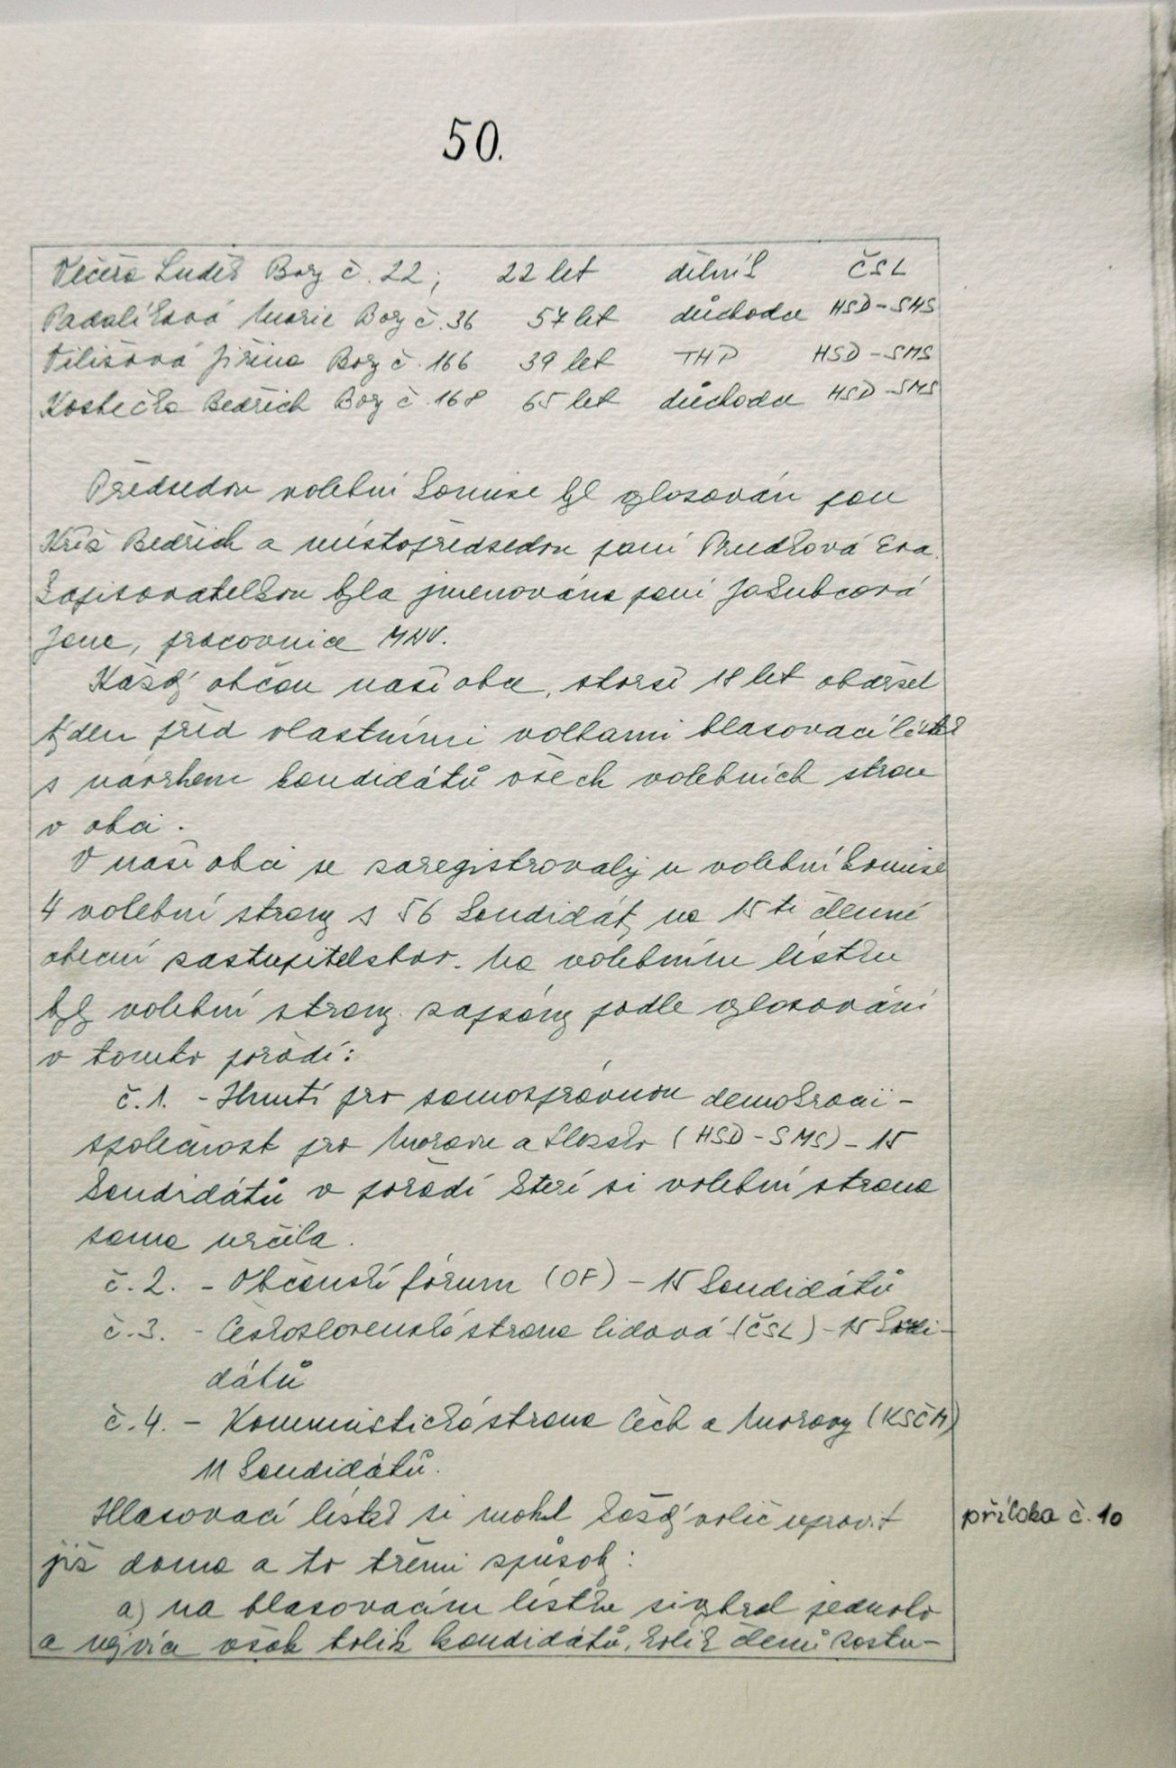 50.
Večeřa Luděk Bory č. 22, 22 let dělník ČSL
Padalíková Marie Bory č. 36 57 let důchodce HSD-SMS
Vilišová Jiřina Bory č. 166 39 let THP HSD-SMS
Kostečka Bedřich Bory č. 168 65 let důchodce HSD-SMS
Předsedou volební komise byl vylosován pan
Kříž Bedřich a místopředsedou paní Prudková Eva.
Zapisovatelkou byla jmenována paní Jakubcová
Jana, pracovnice MNV.
Každý občan naší obce, starší 18 let obdržel
týden před vlastními volbami hlasovací lístek
s návrhem kandidátů všech volebních stran
v obci.
V naší obci se zaregistrovaly u volební komise
4 volební strany s 56 kandidáty na 15 ti členné
obecní zastupitelstvo. Na volebním lístku
byly volební strany zapsány podle vylosování
v tomto pořadí:
č.1. - Hnutí pro samosprávnou demokracii -
společnost pro Moravu a Slezsko (HSD-SMS) - 15
kandidátů v pořadí které si volební strana
sama určila.
č.2. - Občanské fórum (OF) - 15 kandidátů
č.3. - Československá strana lidová (ČSL) - 15 kandi-
dátů
č.4. - Komunistická strana Čech a Moravy (KSČM)
11 kandidátů.
Hlasovací lístek si mohl každý volič upravit
již doma a to třemi způsoby:
příloha č. 10
a) na hlasovacím lístku si vybral jednoho
a nejvíce však tolik kandidátů, kolik členů zastu-